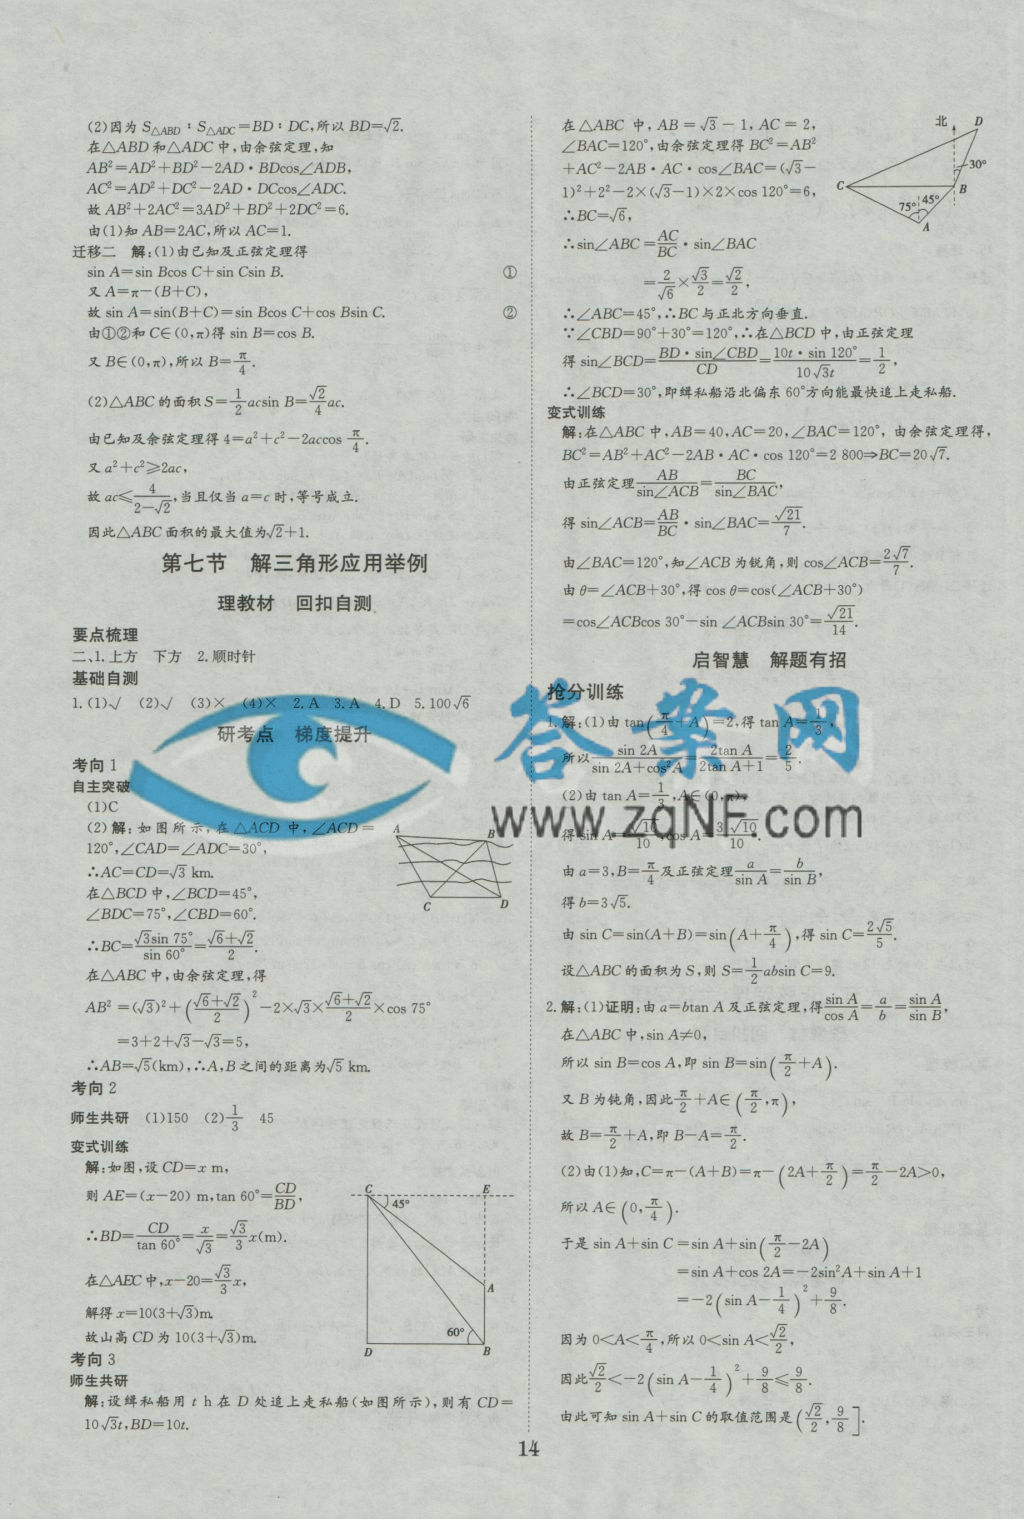 (2)因为 S△ABD：S△ADC=BD：DC,所以 BD=√2.
在△ABD 和△ADC 中,由余弦定理,知
AB²=AD²+BD²-2AD·BDcos∠ADB,
AC²=AD²+DC²-2AD·DCcos∠ADC.
故 AB²+2AC²=3AD²+BD²+2DC²=6.
由(1)知 AB=2AC,所以 AC=1.
迁移二 解:(1)由已知及正弦定理得
sin A=sin Bcos C+sin Csin B. ①
又 A=π-(B+C),
故 sin A=sin(B+C)=sin Bcos C+cos Bsin C. ②
由①②和 C∈(0,π)得 sin B=cos B.
又 B∈(0,π),所以 B=π/4.
(2)△ABC 的面积 S=1/2 acsin B=√2/4 ac.
由已知及余弦定理得 4=a²+c²-2accos π/4.
又 a²+c²≥2ac,
故 ac≤4/(2-√2),当且仅当 a=c 时,等号成立.
因此△ABC 面积的最大值为√2+1.
第七节 解三角形应用举例
理教材 回扣自测
要点梳理
二、1.上方 下方 2.顺时针
基础自测
1.(1)√ (2)√ (3)× (4)× 2.A 3.A 4.D 5.100√6
研考点 梯度提升
考向 1
自主突破
(1)C
(2)解:如图所示,在△ACD 中,∠ACD=
120°,∠CAD=∠ADC=30°,
∴AC=CD=√3 km.
在△BCD 中,∠BCD=45°,
∠BDC=75°,∠CBD=60°.
∴BC=√3sin 75°/sin 60°=(√6+√2)/2.
在△ABC 中,由余弦定理,得
AB²=(√3)²+((√6+√2)/2)²-2×√3×(√6+√2)/2×cos 75°
=3+2+√3-√3=5,
∴AB=√5(km),∴A,B 之间的距离为√5 km.
A B C D
考向 2
师生共研 (1)150 (2)1/3 45
变式训练
解:如图,设 CD=x m,
则 AE=(x-20) m,tan 60°=CD/BD,
∴BD=CD/tan 60°=x/√3=√3/3 x(m).
在△AEC 中,x-20=√3/3 x,
解得 x=10(3+√3)m.
故山高 CD 为 10(3+√3)m.
C E 45° A 60° D B
考向 3
师生共研
解:设缉私船用 t h 在 D 处追上走私船(如图所示),则有 CD=
10√3t,BD=10t.
在△ABC 中,AB=√3-1,AC=2,
∠BAC=120°,由余弦定理得 BC²=AB²
+AC²-2AB·AC·cos∠BAC=(√3-
1)²+2²-2×(√3-1)×2×cos 120°=6,
∴BC=√6,
∴sin∠ABC=AC/BC·sin∠BAC
=2/√6×√3/2=√2/2,
北 D 30° C B 75° 45° A
∴∠ABC=45°,∴BC 与正北方向垂直.
∵∠CBD=90°+30°=120°,∴在△BCD 中,由正弦定理
得 sin∠BCD=BD·sin∠CBD/CD=10t·sin 120°/10√3t=1/2,
∴∠BCD=30°,即缉私船沿北偏东 60°方向能最快追上走私船.
变式训练
解:在△ABC 中,AB=40,AC=20,∠BAC=120°, 由余弦定理得,
BC²=AB²+AC²-2AB·AC·cos 120°=2 800⇒BC=20√7.
由正弦定理AB/sin∠ACB=BC/sin∠BAC,
得 sin∠ACB=AB/BC·sin∠BAC=√21/7.
由∠BAC=120°,知∠ACB 为锐角,则 cos∠ACB=2√7/7.
由 θ=∠ACB+30°,得 cos θ=cos(∠ACB+30°)
=cos∠ACBcos 30°-sin ∠ACBsin 30°=√21/14.
启智慧 解题有招
抢分训练
1.解:(1)由 tan(π/4+A)=2,得 tan A=1/3,
所以 sin 2A/(sin 2A+cos²A)=2tan A/(2tan A+1)=2/5.
(2)由 tan A=1/3,A∈(0,π),
得 sin A=√10/10,cos A=3√10/10.
由 a=3,B=π/4及正弦定理a/sin A=b/sin B,
得 b=3√5.
由 sin C=sin(A+B)=sin(A+π/4),得 sin C=2√5/5.
设△ABC 的面积为 S,则 S=1/2 absin C=9.
2.解:(1)证明:由 a=btan A 及正弦定理,得sin A/cos A=a/b=sin A/sin B,
在△ABC 中,sin A≠0,
所以 sin B=cos A,即 sin B=sin(π/2+A).
又 B 为钝角,因此π/2+A∈(π/2,π),
故 B=π/2+A,即 B-A=π/2.
(2)由(1)知,C=π-(A+B)=π-(2A+π/2)=π/2-2A>0,
所以 A∈(0,π/4).
于是 sin A+sin C=sin A+sin(π/2-2A)
=sin A+cos 2A=-2sin²A+sin A+1
=-2(sin A-1/4)²+9/8.
因为 0<A<π/4,所以 0<sin A<√2/2,
因此√2/2<-2(sin A-1/4)²+9/8≤9/8.
由此可知 sin A+sin C 的取值范围是(√2/2,9/8].
答案网
www.zqNF.com
14